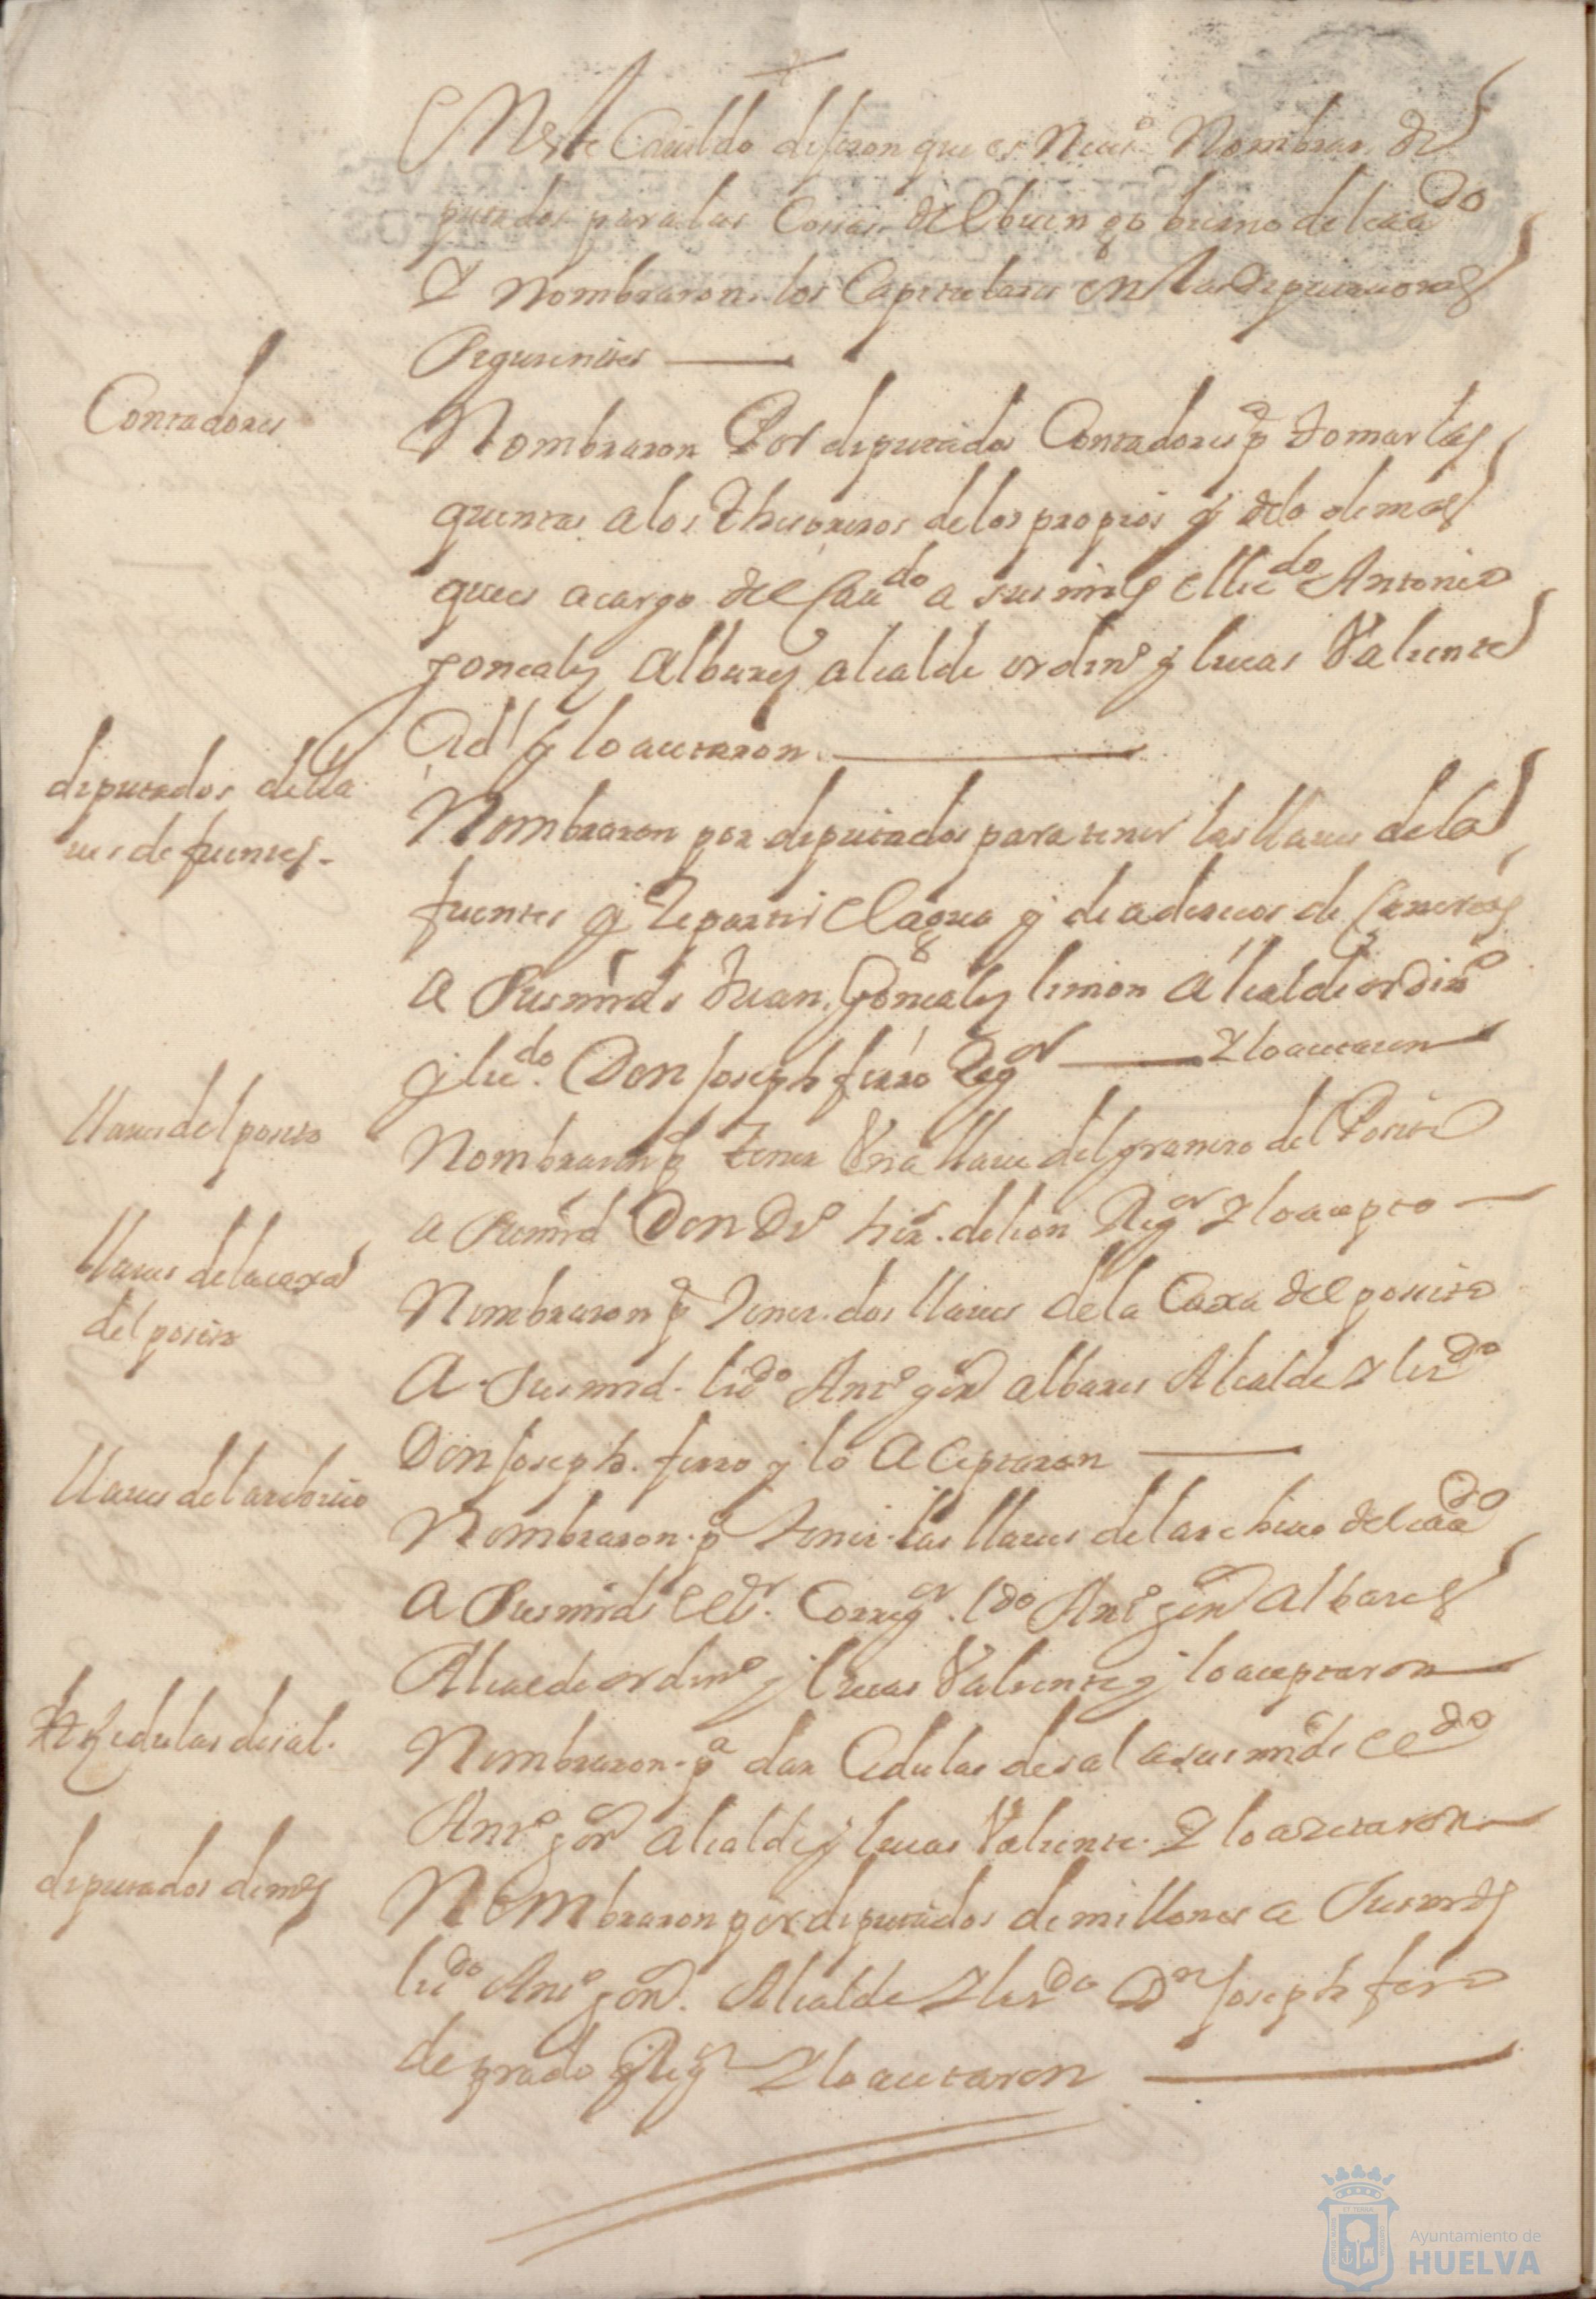 En Este Cauildo dijeron que es Nesº Nombrar di
putados para las Cosas del buen gobierno del caudo
Y Nombraron los Capitulares en las diputaciones
siguientes
Contadores
Nombraron Por diputados Contadores pª tomar las
quentas a los thesoreros de los propios y de lo demas
que es a cargo del Caudo a sus mrds el licdo Antonio
gonçales Albares alcalde ordinº y lucas Valiente
y lo acetaron
diputados de lla
ues de fuentes
Nombraron por diputados para tener las llaues de la
fuentes y Repartir el agua y de adereços de
a sus mrds Juan Gonçales limon Alcalde ordinº
y licdo Don Joseph fierro Regor Y lo acetaron
llaues del posito
Nombraron pª tener Una llaue del granero del Posito
a su mrd Don Dº de leon Regor Y lo acepto
llaues de la caxa
del posito
Nombraron pª tener dos llaues de la Caxa del posito
A sus mrd licdo Antº gon albares Alcalde Y licdo
Don Joseph fierro y lo Aceptaron
llaues del archiuo
Nombraron pª tener las llaues del archiuo del caudo
A sus mrds el Sr Corregor ldo Antº gon Albares
Alcalde ordinº y lucas Valiente y lo aceptaron
cedulas de sal
Nombraron pª dar Cedulas de sal a sus mrds el do
Antº gon alcalde y lucas Valiente Y lo azetaron
diputados de ms
Nombraron por diputados de millones a sus mrds
licdo Antº gon Alcalde Y licdo Dn Joseph fierro
de prado Regor Y lo acetaron
Ayuntamiento de
HUELVA